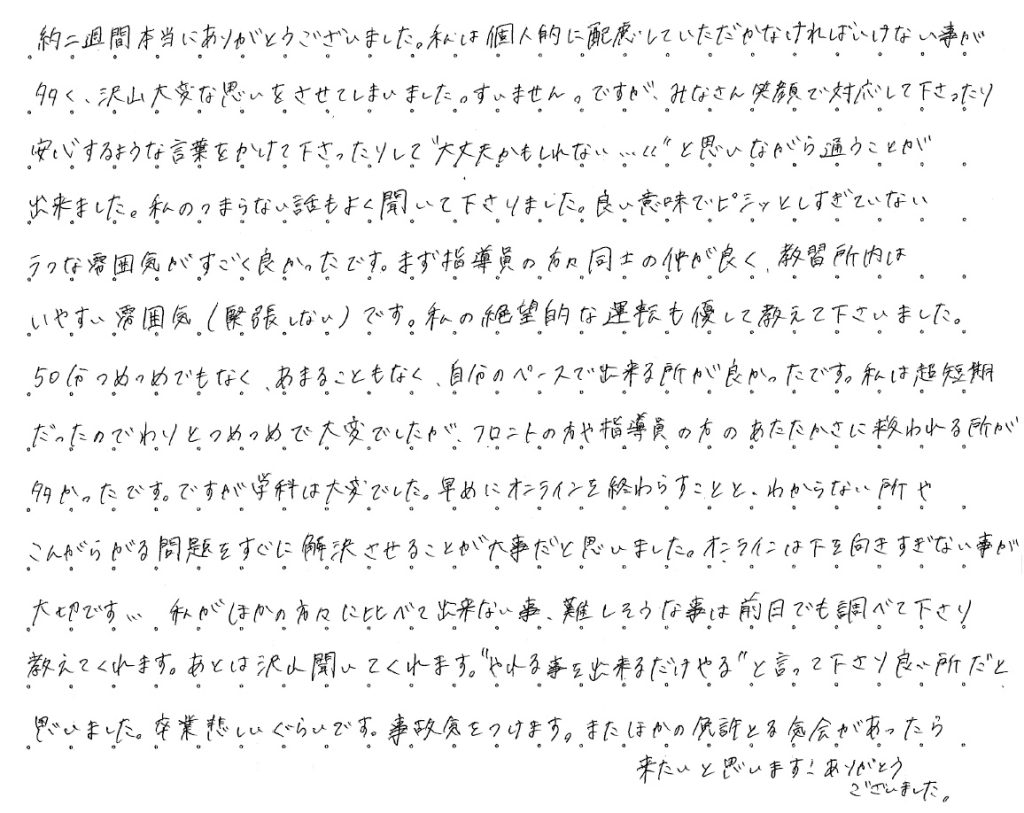 約二週間本当にありがとうございました。私は個人的に配慮していただかなければいけない事が
多く、沢山大変な思いをさせてしまいました。すいません。ですが、みなさん笑顔で対応して下さったり
安心するような言葉をかけて下さったりして"大丈夫かもしれない…"と思いながら通うことが
出来ました。私のつまらない話もよく聞いて下さりました。良い意味でピシッとしすぎていない
ラフな雰囲気がすごく良かったです。まず指導員の方々同士の仲が良く、教習所内は
いやすい雰囲気(緊張しない)です。私の絶望的な運転も優して教えて下さいました。
50分つめつめでもなく、あまることもなく、自分のペースで出来る所が良かったです。私は超短期
だったのでわりとつめつめで大変でしたが、フロントの方や指導員の方のあたたかさに救われる所が
多かったです。ですが学科は大変でした。早めにオンラインを終わらすことと、わからない所や
こんがらがる問題をすぐに解決させることが大事だと思いました。オンラインは下を向きすぎない事が
大切です… 私がほかの方々に比べて出来ない事、難しそうな事は前日でも調べて下さり
教えてくれます。あとは沢山聞いてくれます。"やれる事を出来るだけやる"と言って下さり良い所だと
思いました。卒業悲しいぐらいです。事故気をつけます。またほかの免許とる機会があったら
来たいと思います!ありがとう
ございました。